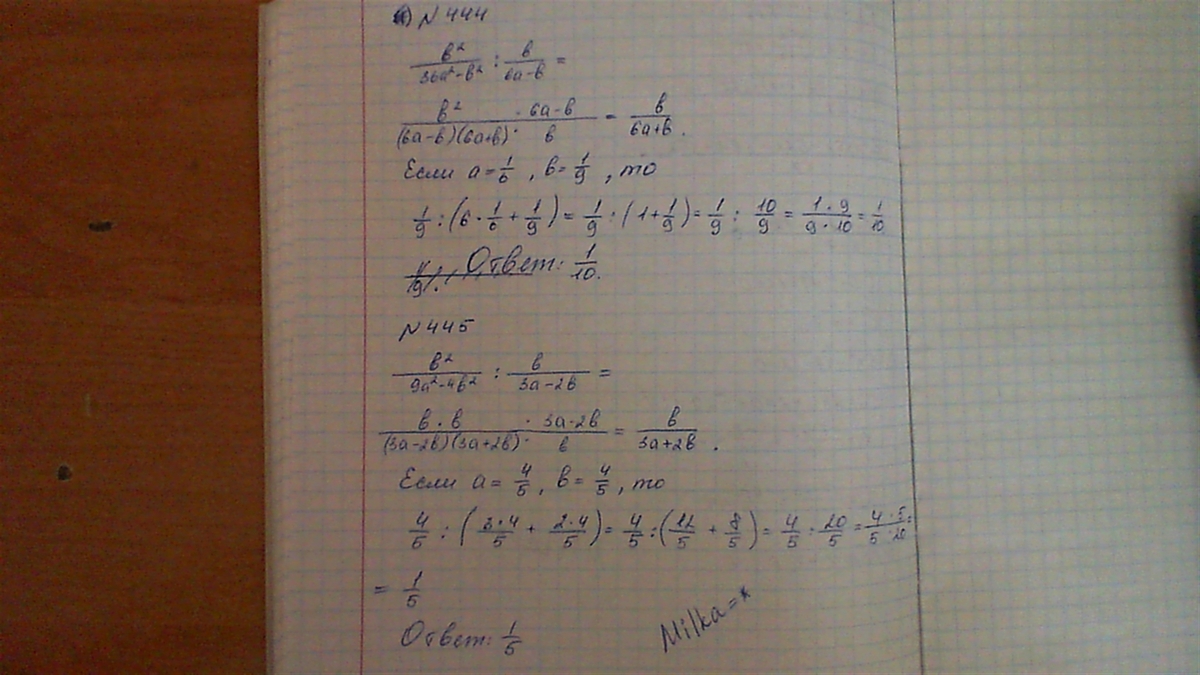 N 444
b²/(36a²-b²) : b/(6a-b) =
b²/((6a-b)(6a+b)) · (6a-b)/b = b/(6a+b).
Если a=1/6, b=1/9, то
1/9 : (6·1/6 + 1/9) = 1/9 : (1+1/9) = 1/9 : 10/9 = (1·9)/(9·10) = 1/10
Ответ: 1/10.
N 445
b²/(9a²-4b²) : b/(3a-2b) =
(b·b)/((3a-2b)(3a+2b)) · (3a-2b)/b = b/(3a+2b).
Если a=4/5, b=4/5, то
4/5 : ((3·4)/5 + (2·4)/5) = 4/5 : (12/5 + 8/5) = 4/5 : 20/5 = (4·5)/(5·20) =
= 1/5
Ответ: 1/5
Milka=*